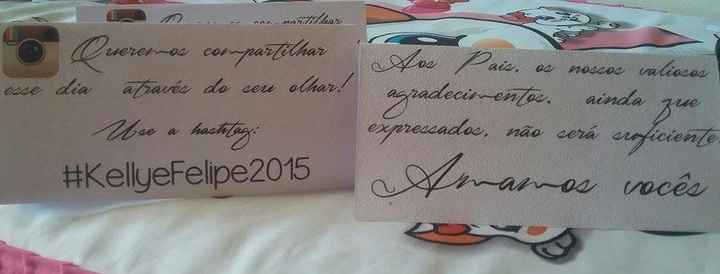 Queremos compartilhar
esse dia através do seu olhar!
Use a hashtag:
#KellyeFelipe2015
Aos Pais, os nossos valiosos
agradecimentos, ainda que
expressados, não será suficiente.
Amamos vocês